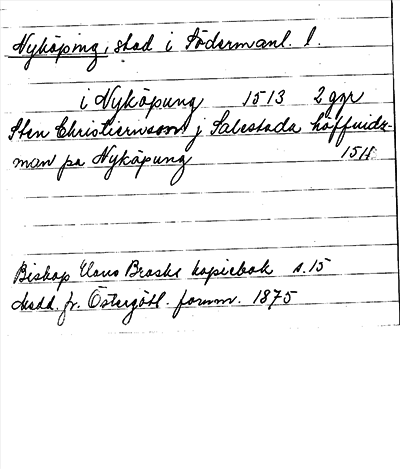 Nyköping, stad i Södermanl. l.
i Nyköpung 1513 2 ggr
Sten Christiernsson j Salestada höffuidz-
man pa Nyköpung 151
Biskop Hans Brasks kopiebok s. 15
Medd. fr. Östergötl. fornm. 1875